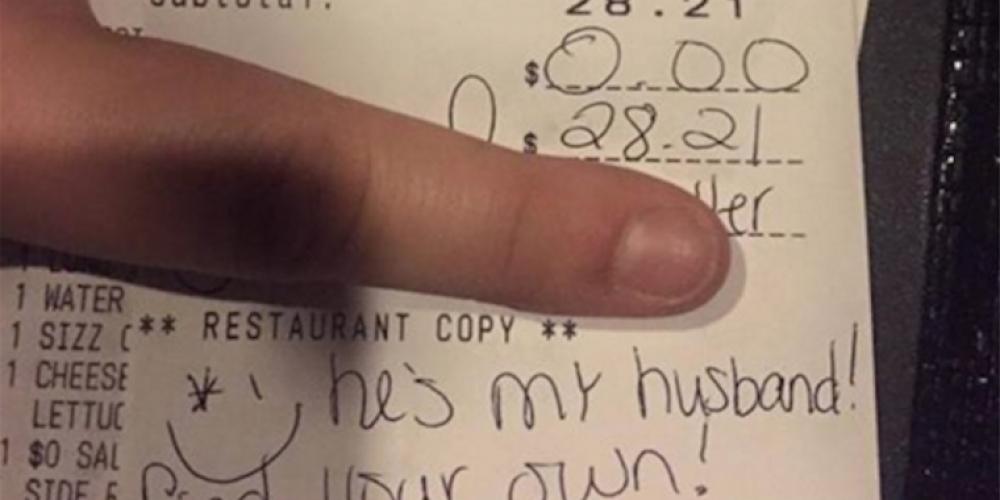 Subtotal: 28.21
$ 0.00
$ 28.21
1 WATER
1 SIZZ
** RESTAURANT COPY **
1 CHEESE
LETTUC
1 $0 SAL
SIDE
he's my husband!
your own!